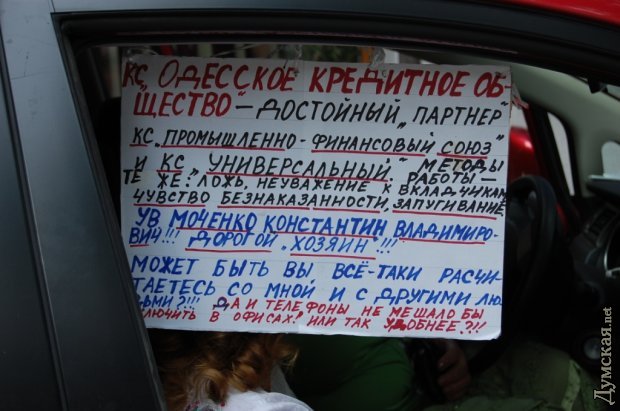 КС „ОДЕССКОЕ КРЕДИТНОЕ ОБ-
ЩЕСТВО" – ДОСТОЙНЫЙ „ПАРТНЕР"
КС „ПРОМЫШЛЕННО-ФИНАНСОВЫЙ СОЮЗ"
И КС „УНИВЕРСАЛЬНЫЙ" МЕТОДЫ РАБОТЫ –
ТЕ ЖЕ: ЛОЖЬ, НЕУВАЖЕНИЕ К ВКЛАДЧИКАМ
ЧУВСТВО БЕЗНАКАЗАННОСТИ, ЗАПУГИВАНИЕ
УВ МОЧЕНКО КОНСТАНТИН ВЛАДИМИРО-
ВИЧ!!! ДОРОГОЙ „ХОЗЯИН"!!!
МОЖЕТ БЫТЬ ВЫ ВСЁ-ТАКИ РАСЧИ-
ТАЕТЕСЬ СО МНОЙ И С ДРУГИМИ ЛЮ-
ДЬМИ?!!! ДА И ТЕЛЕФОНЫ НЕ МЕШАЛО БЫ
ВКЛЮЧИТЬ В ОФИСАХ! ИЛИ ТАК УДОБНЕЕ?!!
Думская.net